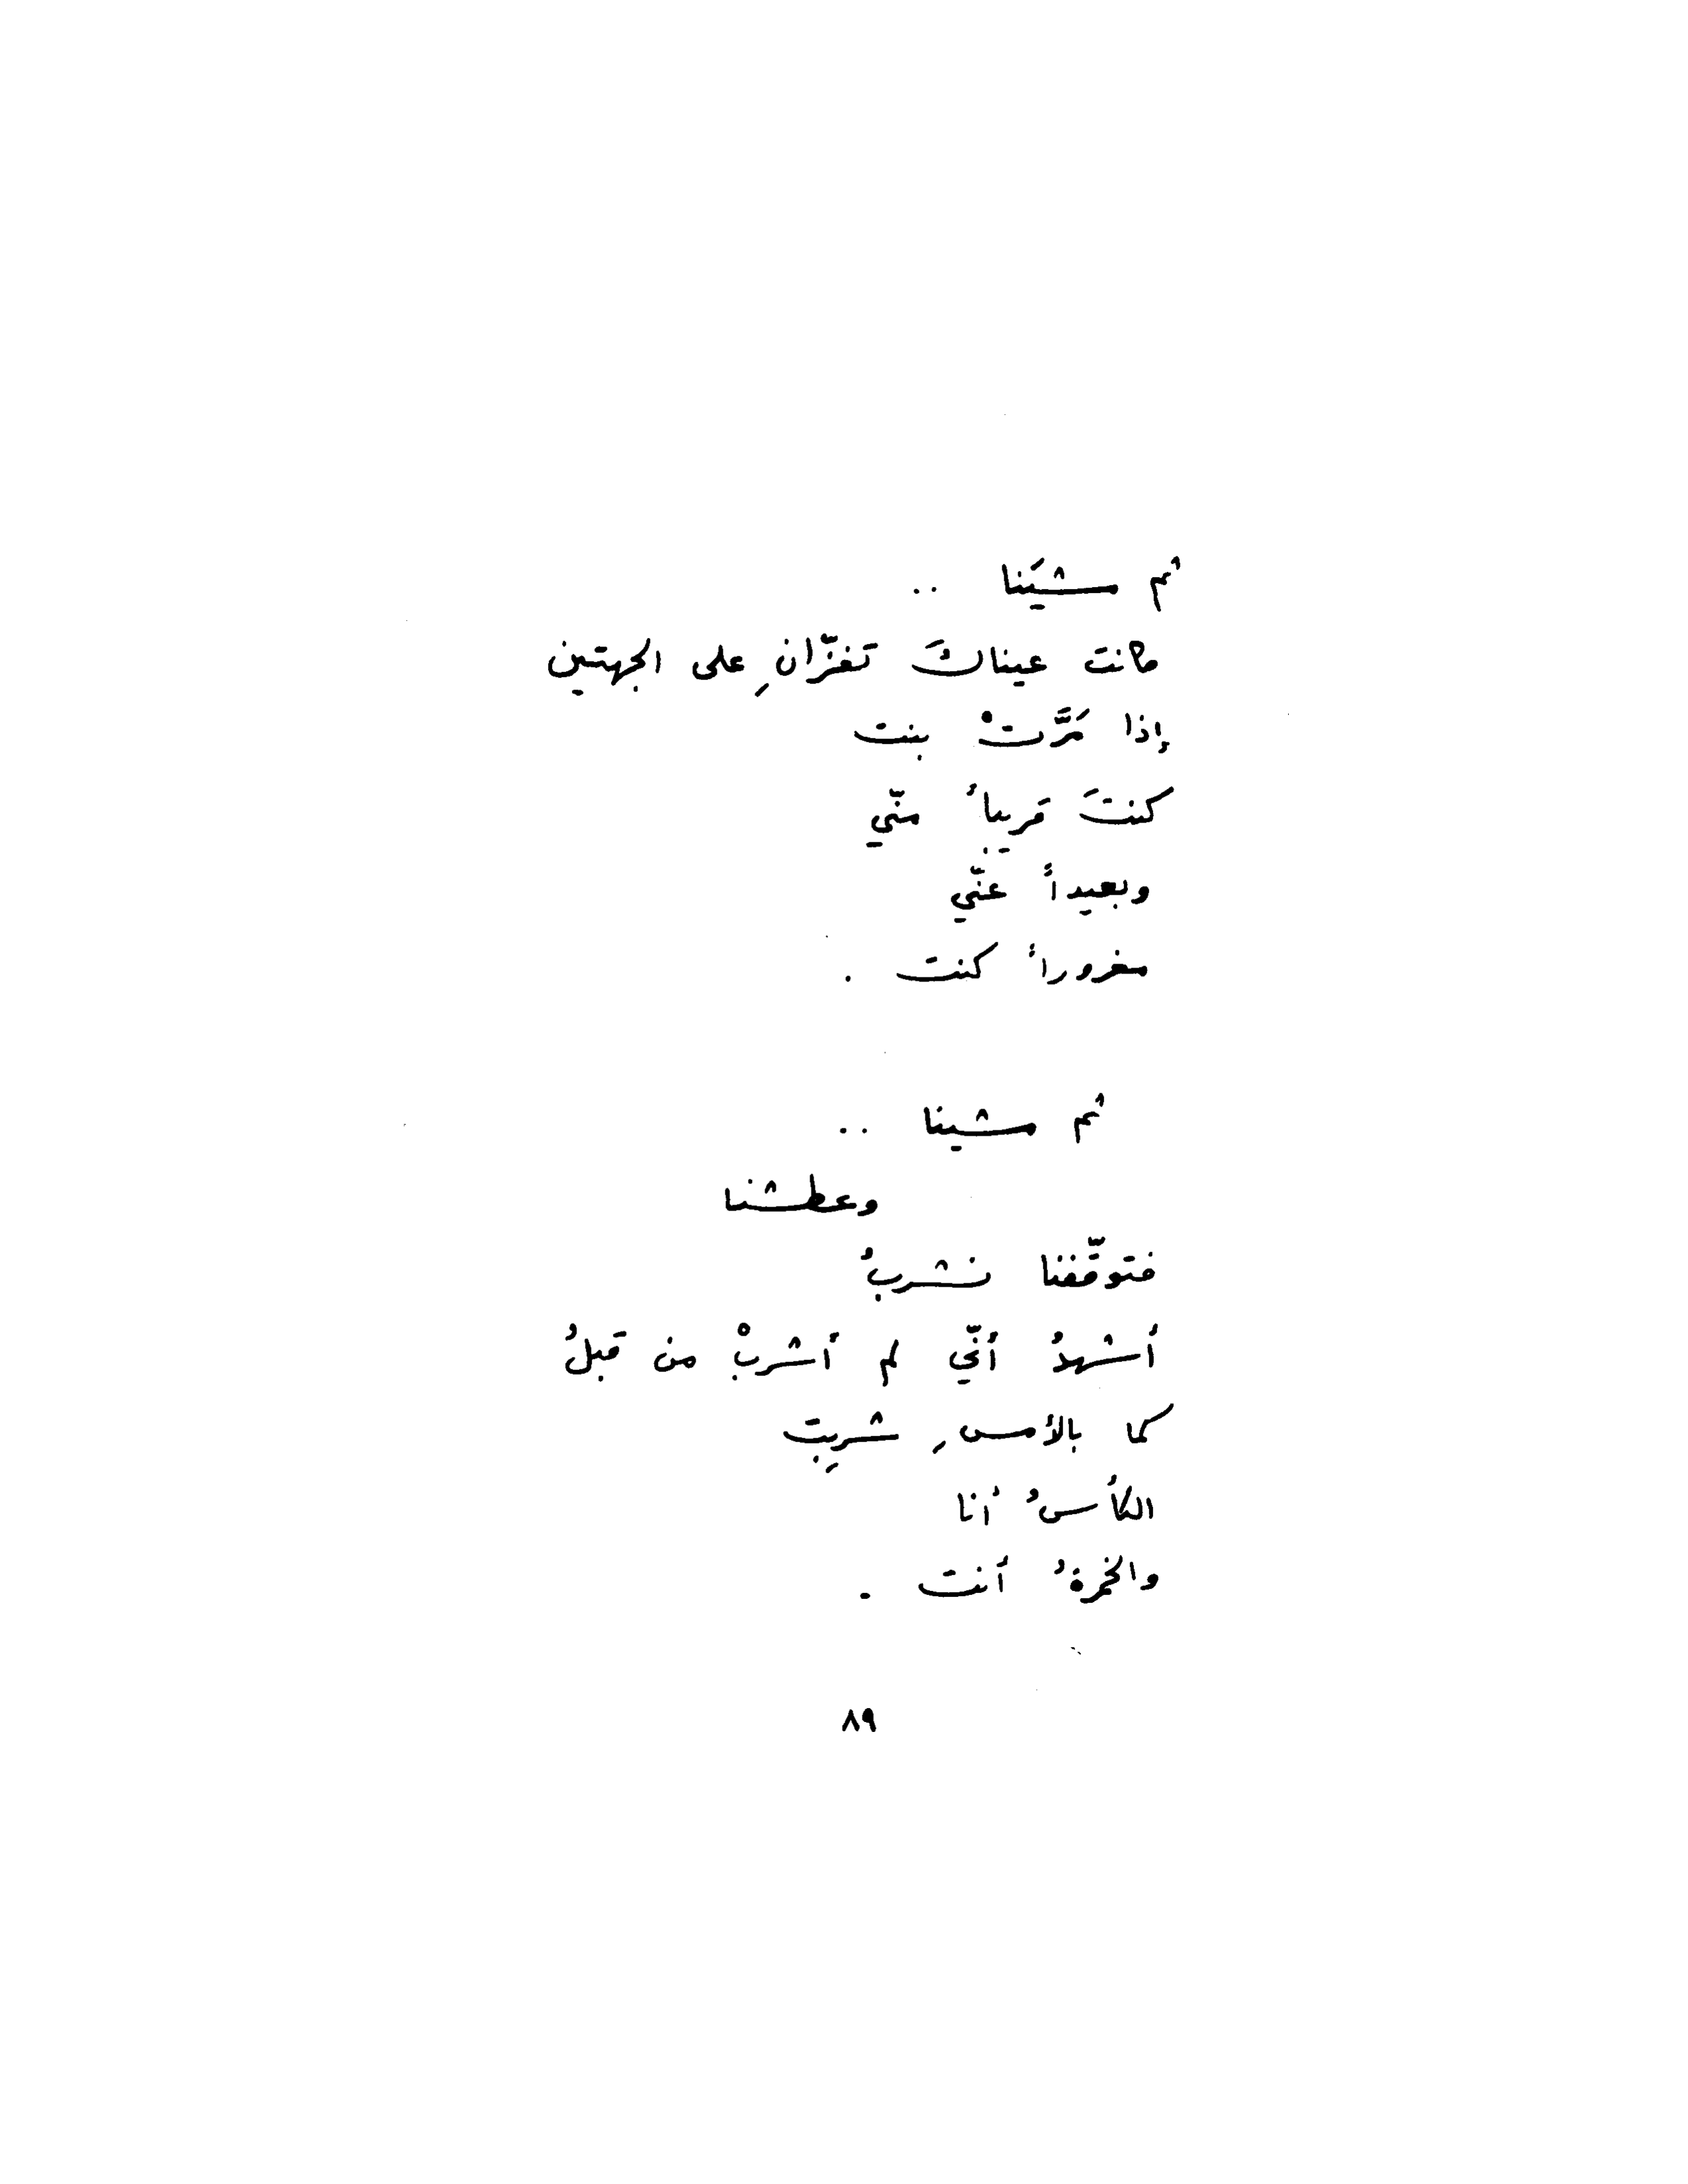 ثم مشَينا ..
كانت عيناكَ تفزّانِ على الجهتين
إذا مَرَّتْ بنت
كنتَ قريباً منّي
وبعيداً عنّي
مغروراً كنت .
ثم مشينا ..
وعطشنا
فتوقّفنا نشربُ
أشهدُ أنّي لم أشربْ من قبلُ
كما بالأمسِ شربِت
الكأسُ أنا
والخمرةُ أنت .
٨٩